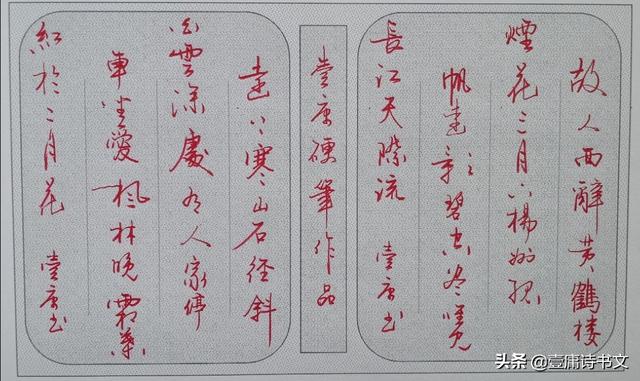 故人西辭黄鶴楼
煙花三月下楊州孤
帆遠影碧空尽唯見
長江天際流 壹庸书
壹庸硬筆作品
遠上寒山石径斜
白雲深處有人家停
車坐愛楓林晚霜葉
紅於二月花 壹庸书
头条 @壹庸诗书文